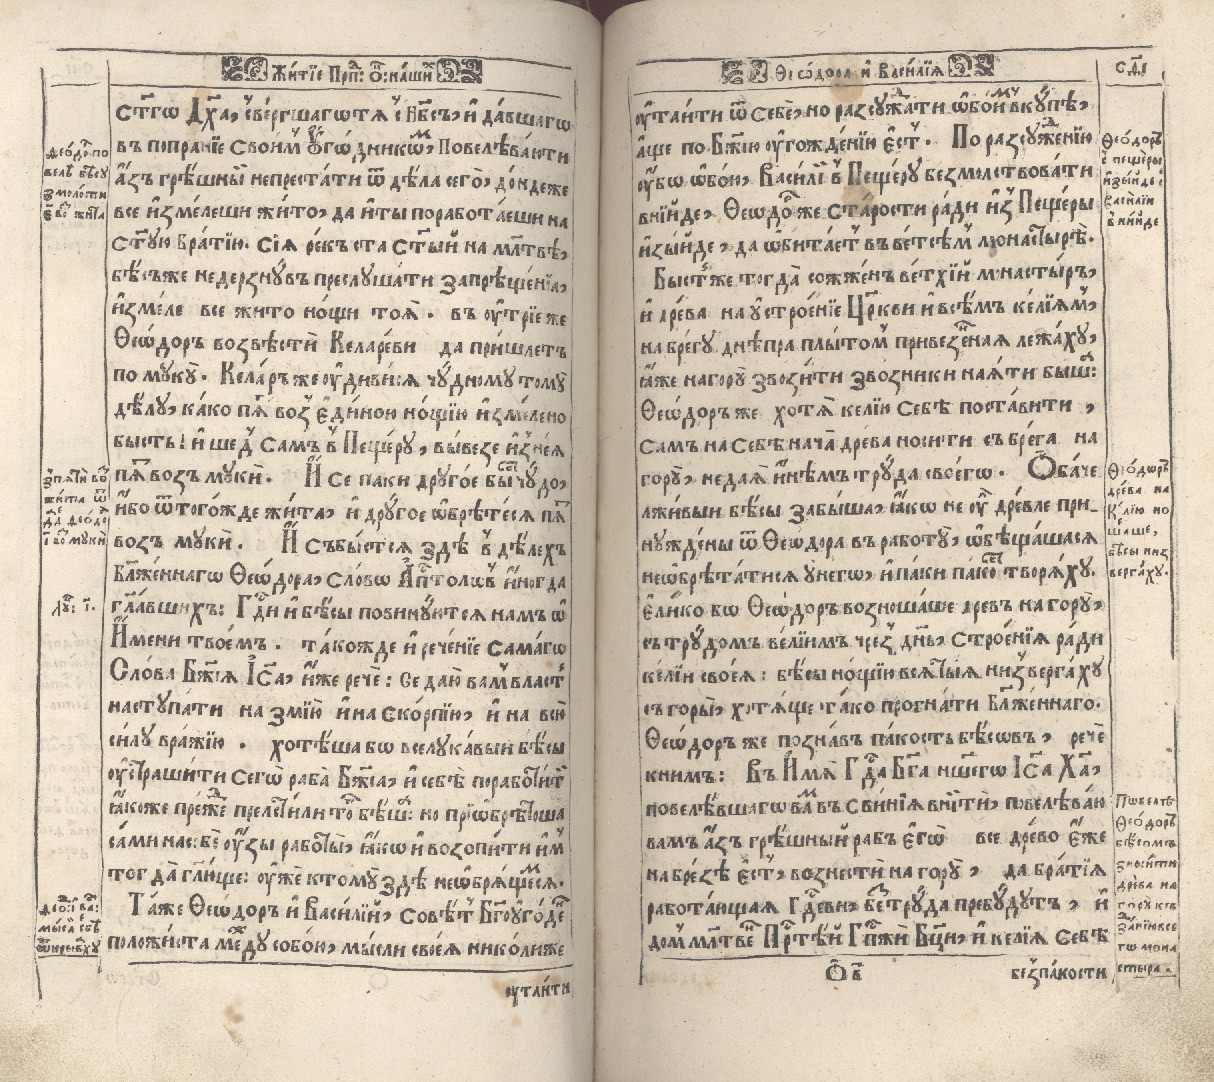 Житїе Прп҃: Ѻ҃: на́ши́
ст҃гѡ Дх҃а, све́ргшагѡтѧ с Нб҃съ, и҆ да́вшагѡ
въ попра́нїе свои́м ѹ҆го́дникѡ, Повелѣва́юти
А҆́зъ грѣ́шны́и непреста́ти ѿ дѣ́ла сегѡ̀, до́ндеже
все и҆зме́леши жи́то, да и҆ ты̀ порабо́таеши на
ст҃ую бра́тїю. сїѧ̀ ре́къ ста ст҃ы́й на мл҃твѣ,
бѣ́съже не де́рзнувъ преслꙋша́ти запреще́нїа,
и҆зме́ле все жи́то но́щи тоѧ̀. въ ѹ҆́трїе же
Ѳеѡ́доръ возвѣстѝ Келаре́ви да при́шлетъ
по мꙋкꙋ̀. Кела́ръ же ѹ҆диви́сѧ чꙋ́дномꙋ томꙋ̀
дѣ́лꙋ, ка́ко пѧ҃ во́з є҆ди́ною но́щїю и҆зме́лено
бысть! и҆ шед̾ са́мъ в̾ Пеще́рꙋ, вы́везе и҆з̾ неѧ̀
пѧ҃ во́зъ мꙋкѝ. И҆ се па́ки дрꙋго́е бы́ст чꙋ́до,
и҆́бо ѿтого́жде жи́та, и҆ дрꙋго́е ѡ҆брѣ́тесѧ пѧ҃
во́зъ мꙋкѝ. И҆ събы́стсѧ здѣ̀ в̾ дѣ́лехъ
Бл҃же́ннагѡ Ѳеѡ́дора, сло́вѡ А҆пⷭ҇толѡв и҆ногда
гл҃авшихъ: Гдⷭ҇и и҆ бѣ́сы повинꙋ́ютсѧ на́мъ ѡ
И҆́мени твое́мъ. та́кожде и҆ рече́нїе самагѡ
Сло́ва Бж҃їѧ І҆и҃са, и҆́же речѐ: се даю̀ ва́м вла́ст
настꙋпа́ти на змїю̀ и҆ на скорпїю̀, и҆ на всю̀
си́лꙋ вра́жїю. хотѣ́ша бо вселꙋка́выи бѣ́сы
ѹ҆страши́ти сего̀ раба̀ Бж҃їа, и҆ себѣ̀ порабо́тит
ꙗ҆́коже пре́жде прелсти́ли то́ бѣ́ш: но прїѡбрѣто́ша
са́ми на себѐ ѹ҆́зы рабо́ты, ꙗ҆́кѡ и҆ возопи́ти и҆́м
тогда̀ гл҃юще: ѹ҆жѐ ктомꙋ̀ здѣ̀ не ѡ҆брѧ́щемсѧ.
Та́же Ѳеѡ́доръ и҆ Васи́лїй, совѣ́т Бг҃оуго́де
положи́ста междꙋ̀ собо́ю, мы́сли своеѧ̀ нико́лиже
ѹ҆таи́ти
Ѳеѡдо пове
лѣ бѣсꙋ
змоло́ти
є҃ во́ жита
И҆зпѧтѝ во
жи́та ѿ
да Ѳеѡдо
і҃ во́ мꙋкѝ
Лꙋ҃: і҃.
Ѳеѡ: и҆ Ва:
мы́сл себѣ
ѿкрываху
Ѳеѡ́дора и҆ Васи́лїѧ
сд҃і
ѹ҆таи́ти ѿ себѐ, но разсꙋжда́ти ѡ҆бо́имꙋ вкꙋ́пѣ,
а҆́ще по Бж҃їю ѹ҆гожде́нїю є҆́ст. По разсꙋжде́нїю
ѹ҆́бо ѡ҆бо́ю, Васи́лїй в̾ Пеще́рꙋ безмо́лствовати
вни́йде, Ѳеѡдо́р же ста́рости ра́ди и҆з̾ Пеще́ры
и҆зы́йде, да ѡ҆бита́ет в ве́тсѣм монасты́рѣ.
Бы́ст же тогда̀ сожже́нъ ве́тхїй мнасты́рь,
и҆ древа̀ на ѹ҆строе́нїе Цр҃кви и҆ всѣ́мъ ке́лїѧм,
на брегꙋ̀ днѣпра̀ плы́том приве́зеная лежа́хꙋ,
ꙗ҆́же на горꙋ̀ звози́ти зво́зники наѧ́ти бы́ш:
Ѳеѡ́доръ же хотѧ̀ ке́лїю себѣ̀ поста́вити,
са́мъ на себѣ̀ нача̀ древа̀ носи́ти съ бре́га на
горꙋ̀, недаѧ̀ и҆нѣ́мъ трꙋда̀ своегѡ̀. Ѻ҆ба́че
лжи́выи бѣ́сы забы́ша, ꙗ҆́кѡ не ѹ҆̀ дре́вле при-
нꙋжде́ны ѿ Ѳеѡ́дора въ рабо́тꙋ, ѡ҆бѣща́шасѧ
не ѡ҆брѣта́тисѧ ꙋ него̀, и҆ па́ки па́кости творѧ́хꙋ.
Є҆ли́ко бо Ѳеѡ́доръ возноша́ше дре́въ на горꙋ̀,
съ трꙋдо́мъ ве́лїимъ чрез̾ дн҃ь, строе́нїѧ ра́ди
ке́лїи своеѧ̀: бѣ́сы но́щїю всѧ̀ тыѧ̀ низ̾верга́хꙋ
съ горы̀, хотѧ́ще та́ко прогна́ти Бл҃же́ннаго.
Ѳеѡ́доръ же позна́въ па́кость бѣсо́въ, речѐ
к ни́мъ: Въ И҆́мѧ Гдⷭ҇а Бг҃а на́шегѡ І҆и҃са Хр҃та,
повелѣ́вшагѡ вам въ сви́нїѧ вни́ти, повелѣва́ю
ва́мъ а҆́зъ грѣ́шный ра́бъ є҆гѡ̀ все дре́во є҆́же
на бре́зѣ є҆́ст, возне́сти на горꙋ̀, да бра́тїѧ
рабо́тающая Гдⷭ҇еви, без̾трꙋда̀ пребꙋ́дꙋтъ, и҆
до́м мл҃твен Прⷭ҇тѣ́й Гп҃жѝ Бц҃и, и҆ ке́лїѧ себѣ̀
Ѻ҆ в҃
безпа́кости
Ѳеѡ́доръ
с пеще́ры
и҆зы́йде
Васи́лїй
вни́йде
Ѳеѡ́доръ
древа̀ на
Ке́лїю но
ша́ше,
бѣ́сы низ
верга́хꙋ.
Повелѣ
Ѳеѡ́доръ
бѣсо́мъ
зноси́ти
древа̀ на
горꙋ къ
зда́нїю все
гѡ мона
стыра.